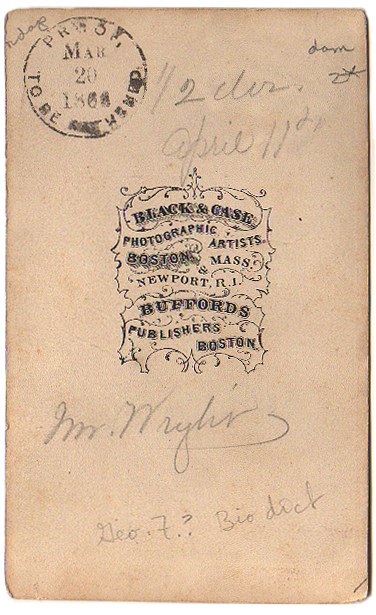 MAR
20
TO BE
1/2 doz.
April 11th
BLACK & CASE
PHOTOGRAPHIC ARTISTS.
BOSTON, MASS.
&
NEWPORT, R.I.
BUFFORDS
PUBLISHERS
BOSTON
Mr.
Geo. F.? Bio dict